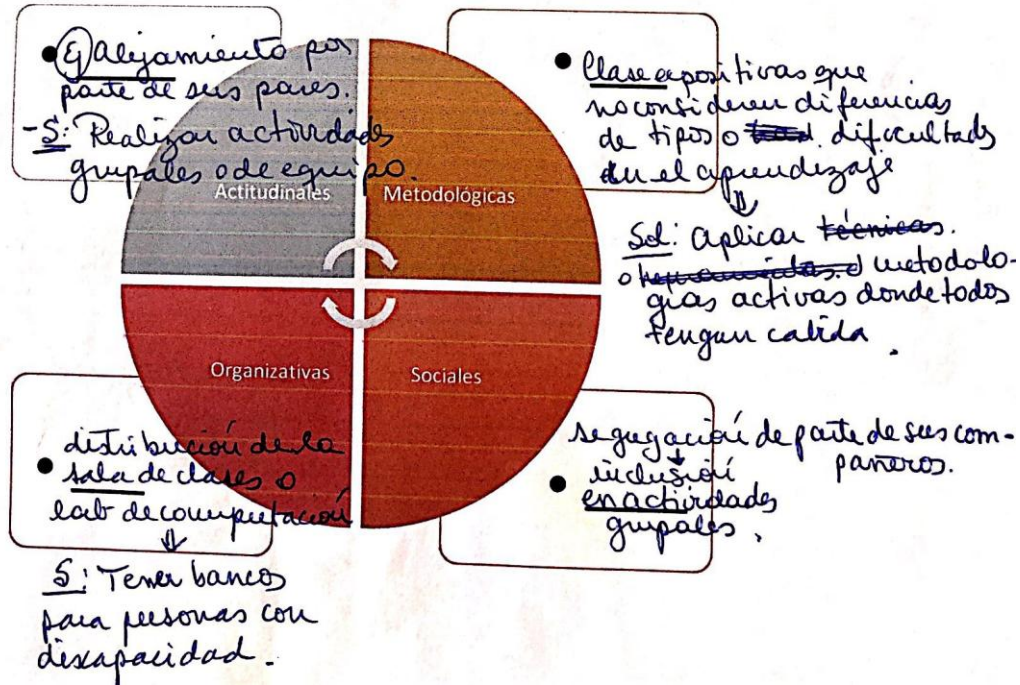 Ej Alejamiento por
parte de sus pares.
- S: Realizar actividades
grupales o de equipo.
Actitudinales
Clase expositivas que
no consideren diferencias
de tipos o dificultads
en el aprendizaje
Sol: Aplicar técnicas.
o herramientas. d metodolo-
gías activas donde todos
tengan cabida.
Metodológicas
Organizativas
distribución de la
sala de clases o
lab de computación
S: Tener bancos
para personas con
discapacidad.
Sociales
segregación de parte de sus com-
pañeros.
inclusión
en actividades
grupales.